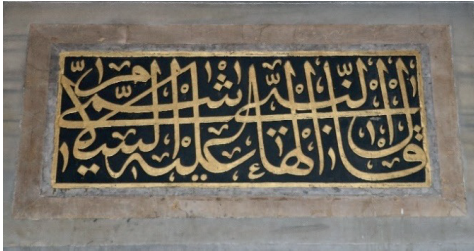 قال النبي الهاشمي عليه السلام